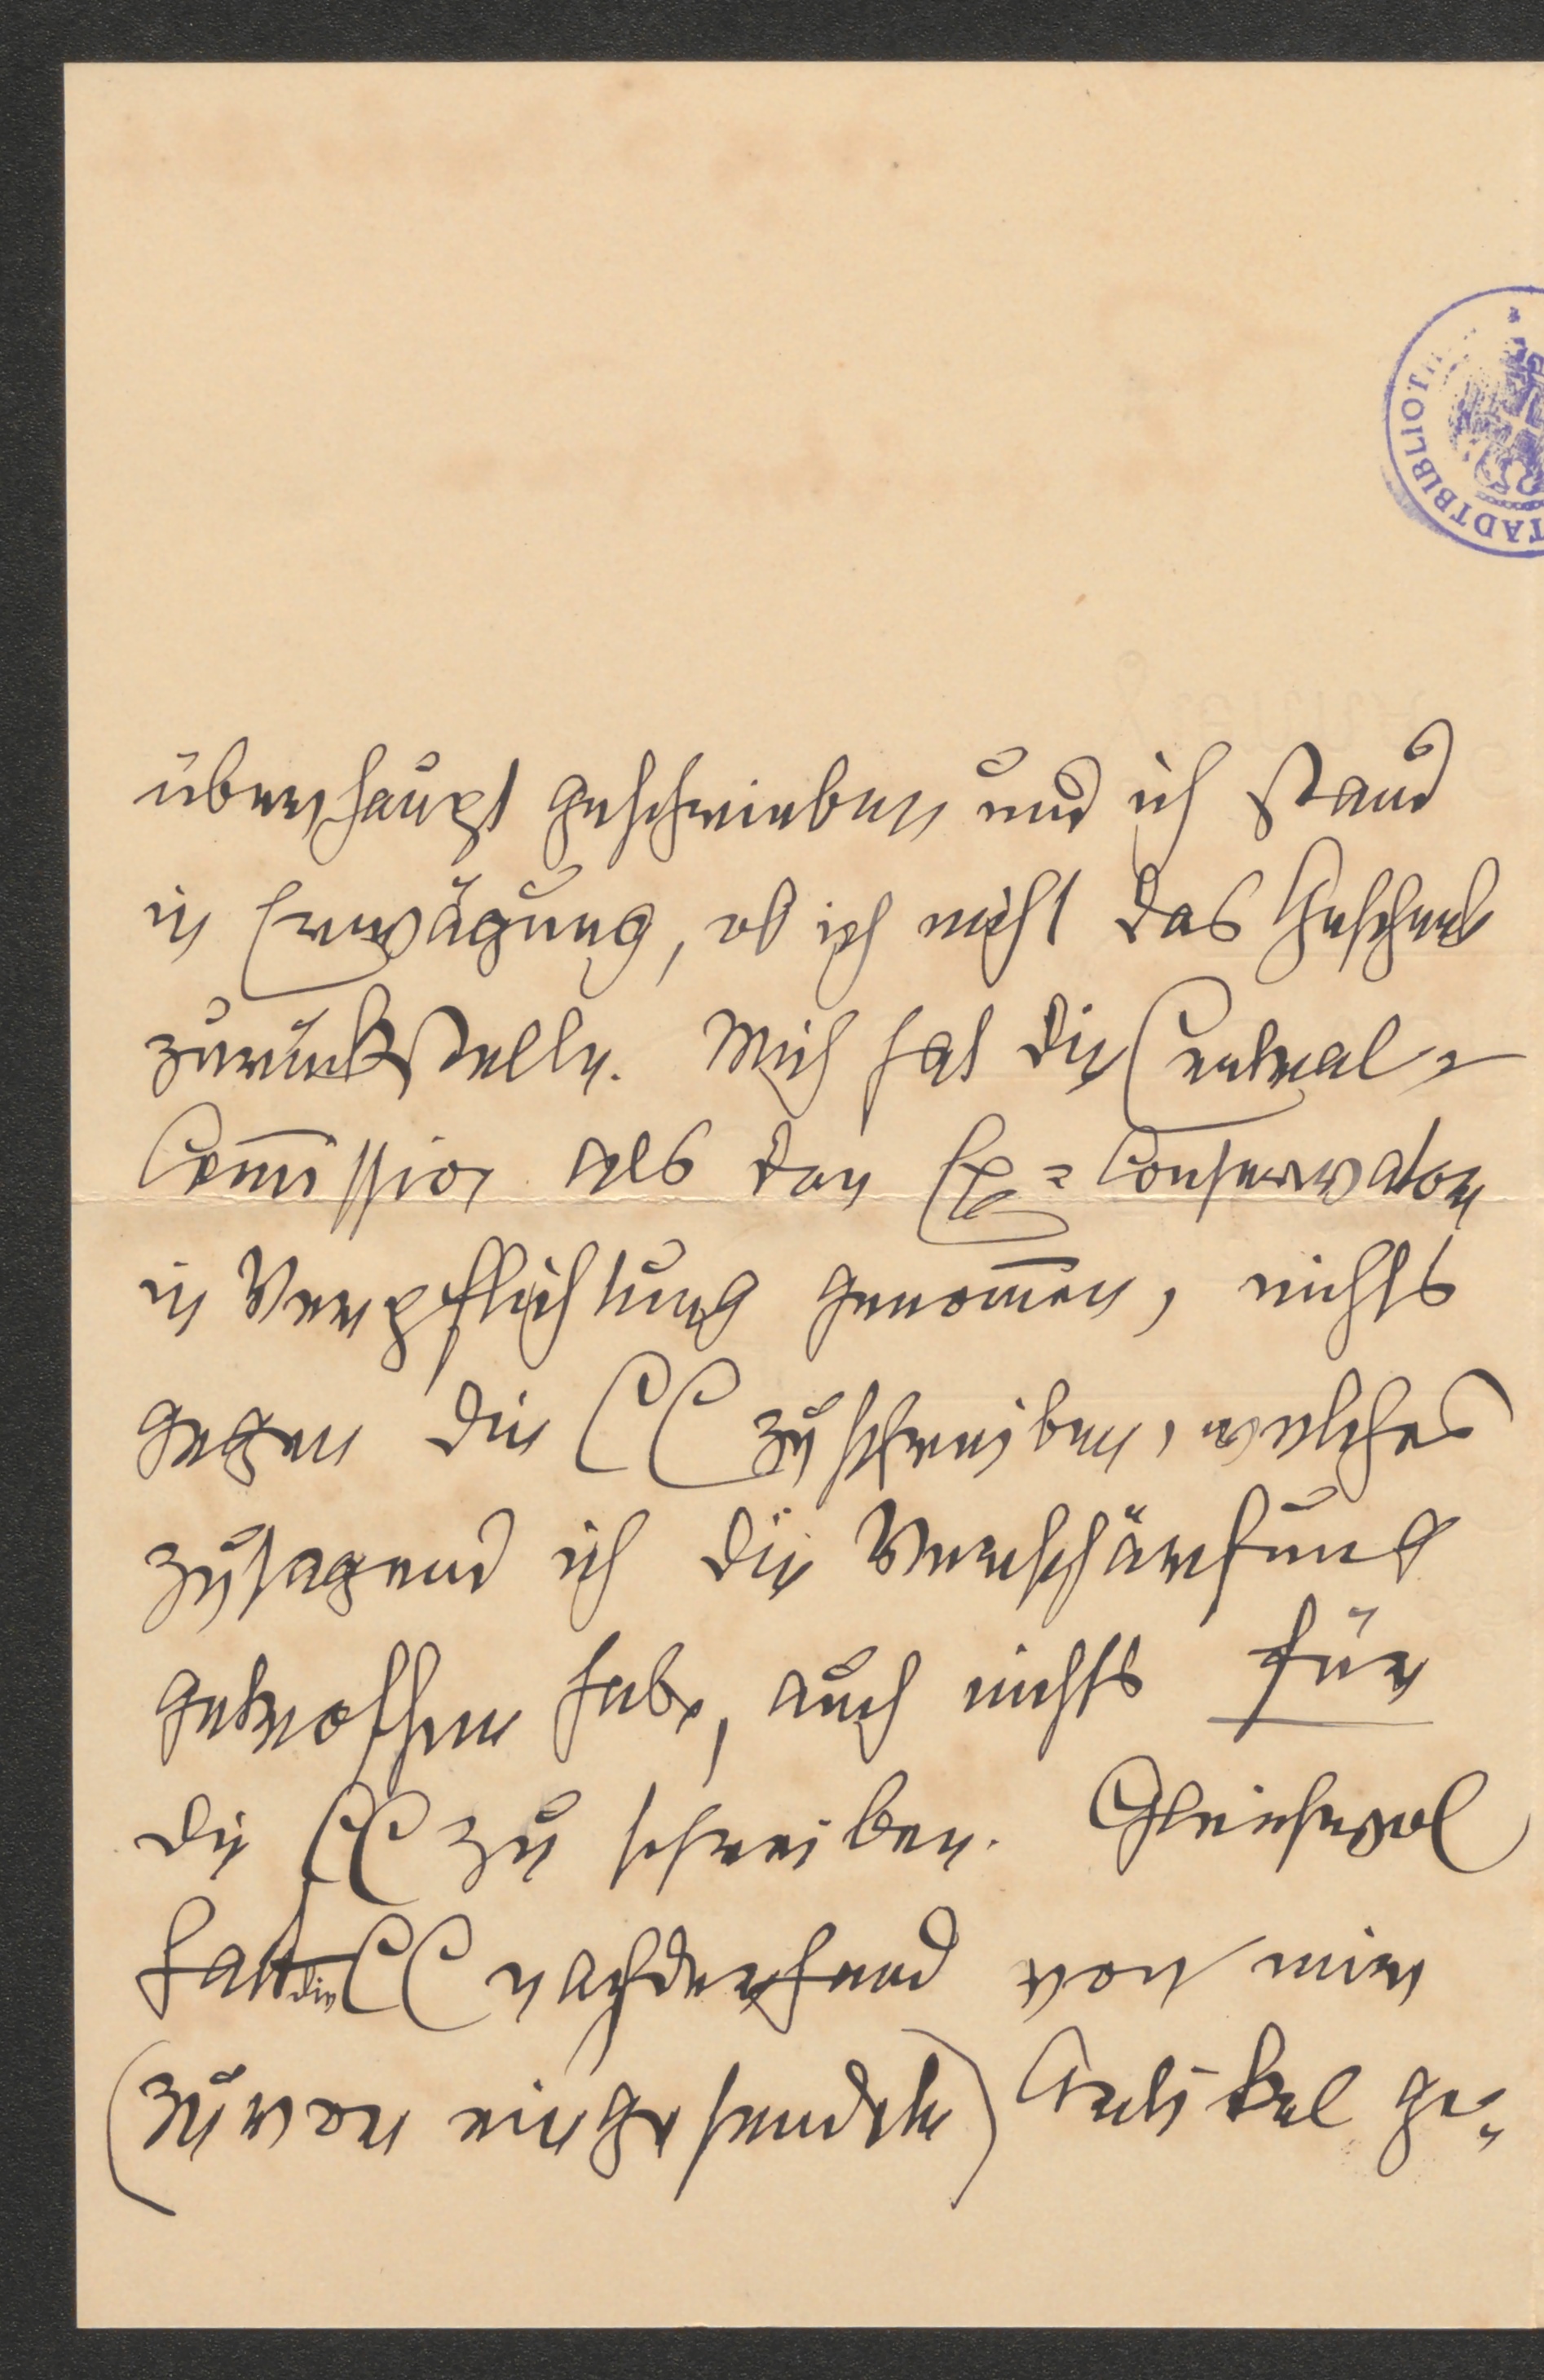 STADTBIBLIOTH
überhaupt geschrieben und ich stand
in Erwägung, ob ich nicht das Geschenk
zurückstelle. Mich hat die Central-
Com̄ission als den Ex=Conservator
in Verpflichtung genom̄en, nichts
gegen die CC zu schreiben, welches
zusagend ich die Verschärfung
getroffen habe, auch nichts für
die CC zu schreiben. Gleichwol
hat die CC nachderhand von mir
(zuvor eingesendete) Artikel ge-